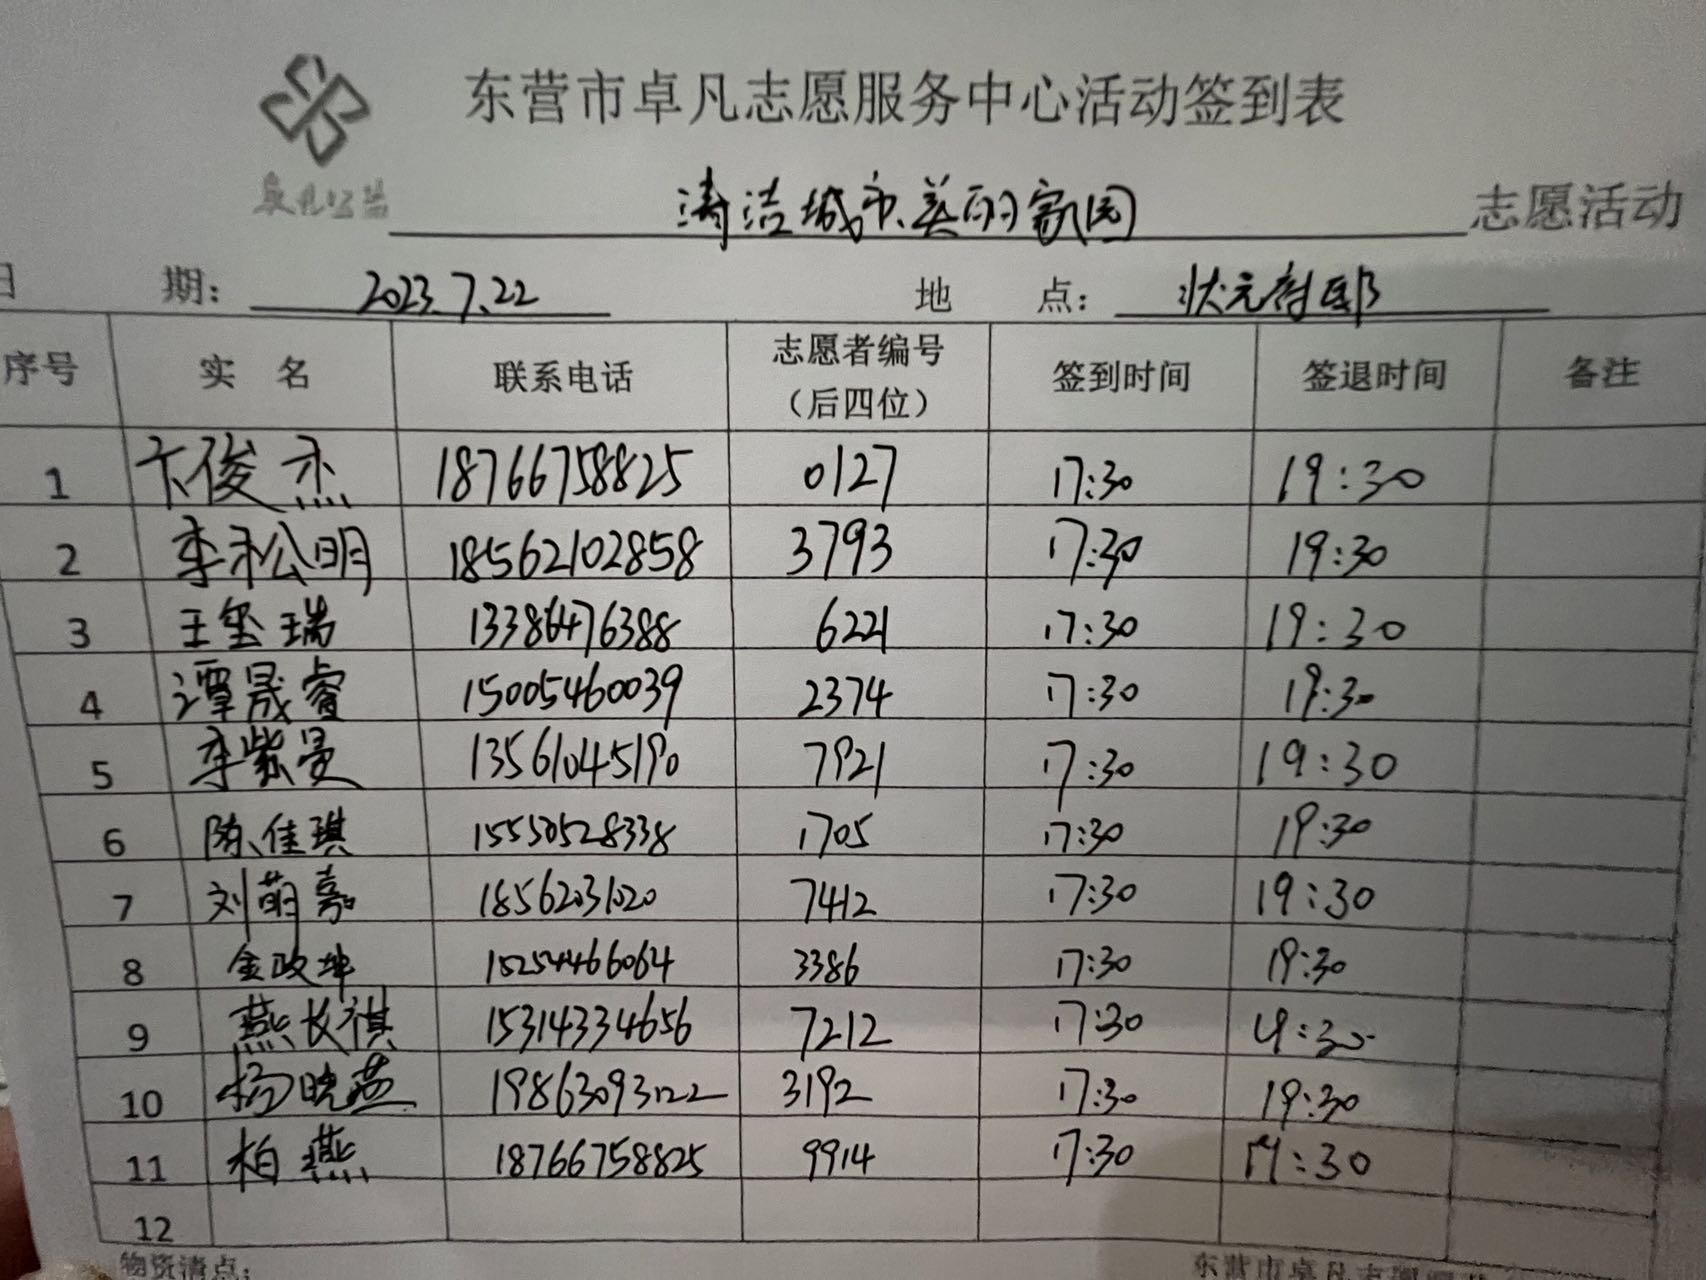 东营市卓凡志愿服务中心活动签到表
卓凡公益
清洁城市、美丽家园 志愿活动
日 期: 2023.7.22 地 点: 状元府邸
序号 实 名 联系电话 志愿者编号(后四位) 签到时间 签退时间 备注
1 卞俊杰 18766758825 0127 17:30 19:30
2 李松明 18562102858 3793 17:30 19:30
3 王玺瑞 13386476388 6221 17:30 19:30
4 谭晟睿 15005460039 2374 17:30 19:30
5 李紫曼 13561045190 7921 17:30 19:30
6 陈佳琪 15550528338 1705 17:30 19:30
7 刘萌嘉 18562031020 7412 17:30 19:30
8 金政坤 15254466064 3386 17:30 19:30
9 燕长祺 15314334656 7212 17:30 19:30
10 杨晓燕 19863093122 3192 17:30 19:30
11 柏燕 18766758825 9914 17:30 19:30
12
物资清点:
东营市卓凡志愿服